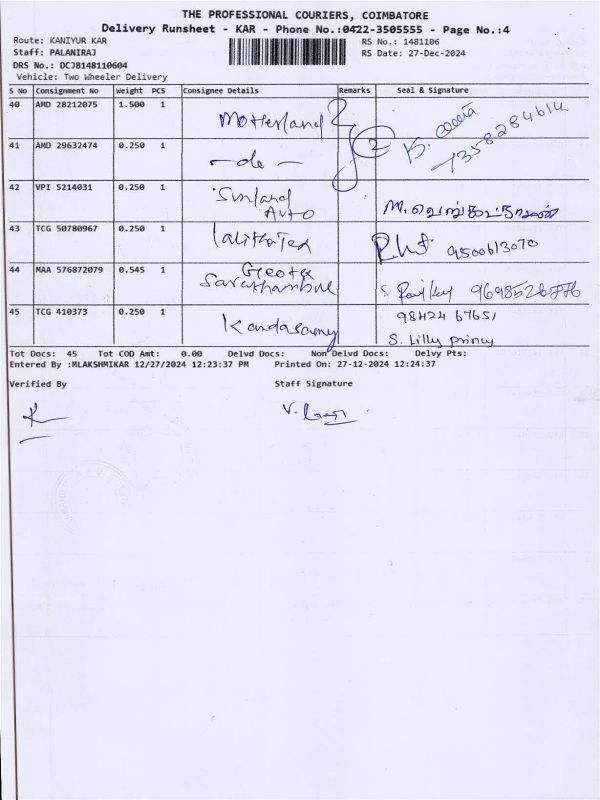 THE PROFESSIONAL COURIERS, COIMBATORE
Delivery Runsheet - KAR - Phone No.:0422-3505555 - Page No.:4
Route: KANIYUR KAR RS No.: 1481106
Staff: PALANIRAJ RS Date: 27-Dec-2024
DRS No.: DCJB148110604
Vehicle: Two Wheeler Delivery
S No Consignment No Weight PCS Consignee Details Remarks Seal & Signature
40 AMD 28212075 1.500 1 Motherland
41 AMD 29632474 0.250 1 -do- 2 7358284614
42 VPI 5214031 0.250 1 Sunland Auto
43 TCG 50780967 0.250 1 Lalitha Tex 9500613070
44 MAA 576872079 0.545 1 9698526876
45 TCG 410373 0.250 1 Kandasamy 98424 67651
S. Lilly princy
Tot Docs: 45 Tot COD Amt: 0.00 Delvd Docs: Non Delvd Docs: Delvy Pts:
Entered By :MLAKSHMIKAR 12/27/2024 12:23:37 PM Printed On: 27-12-2024 12:24:37
Verified By Staff Signature